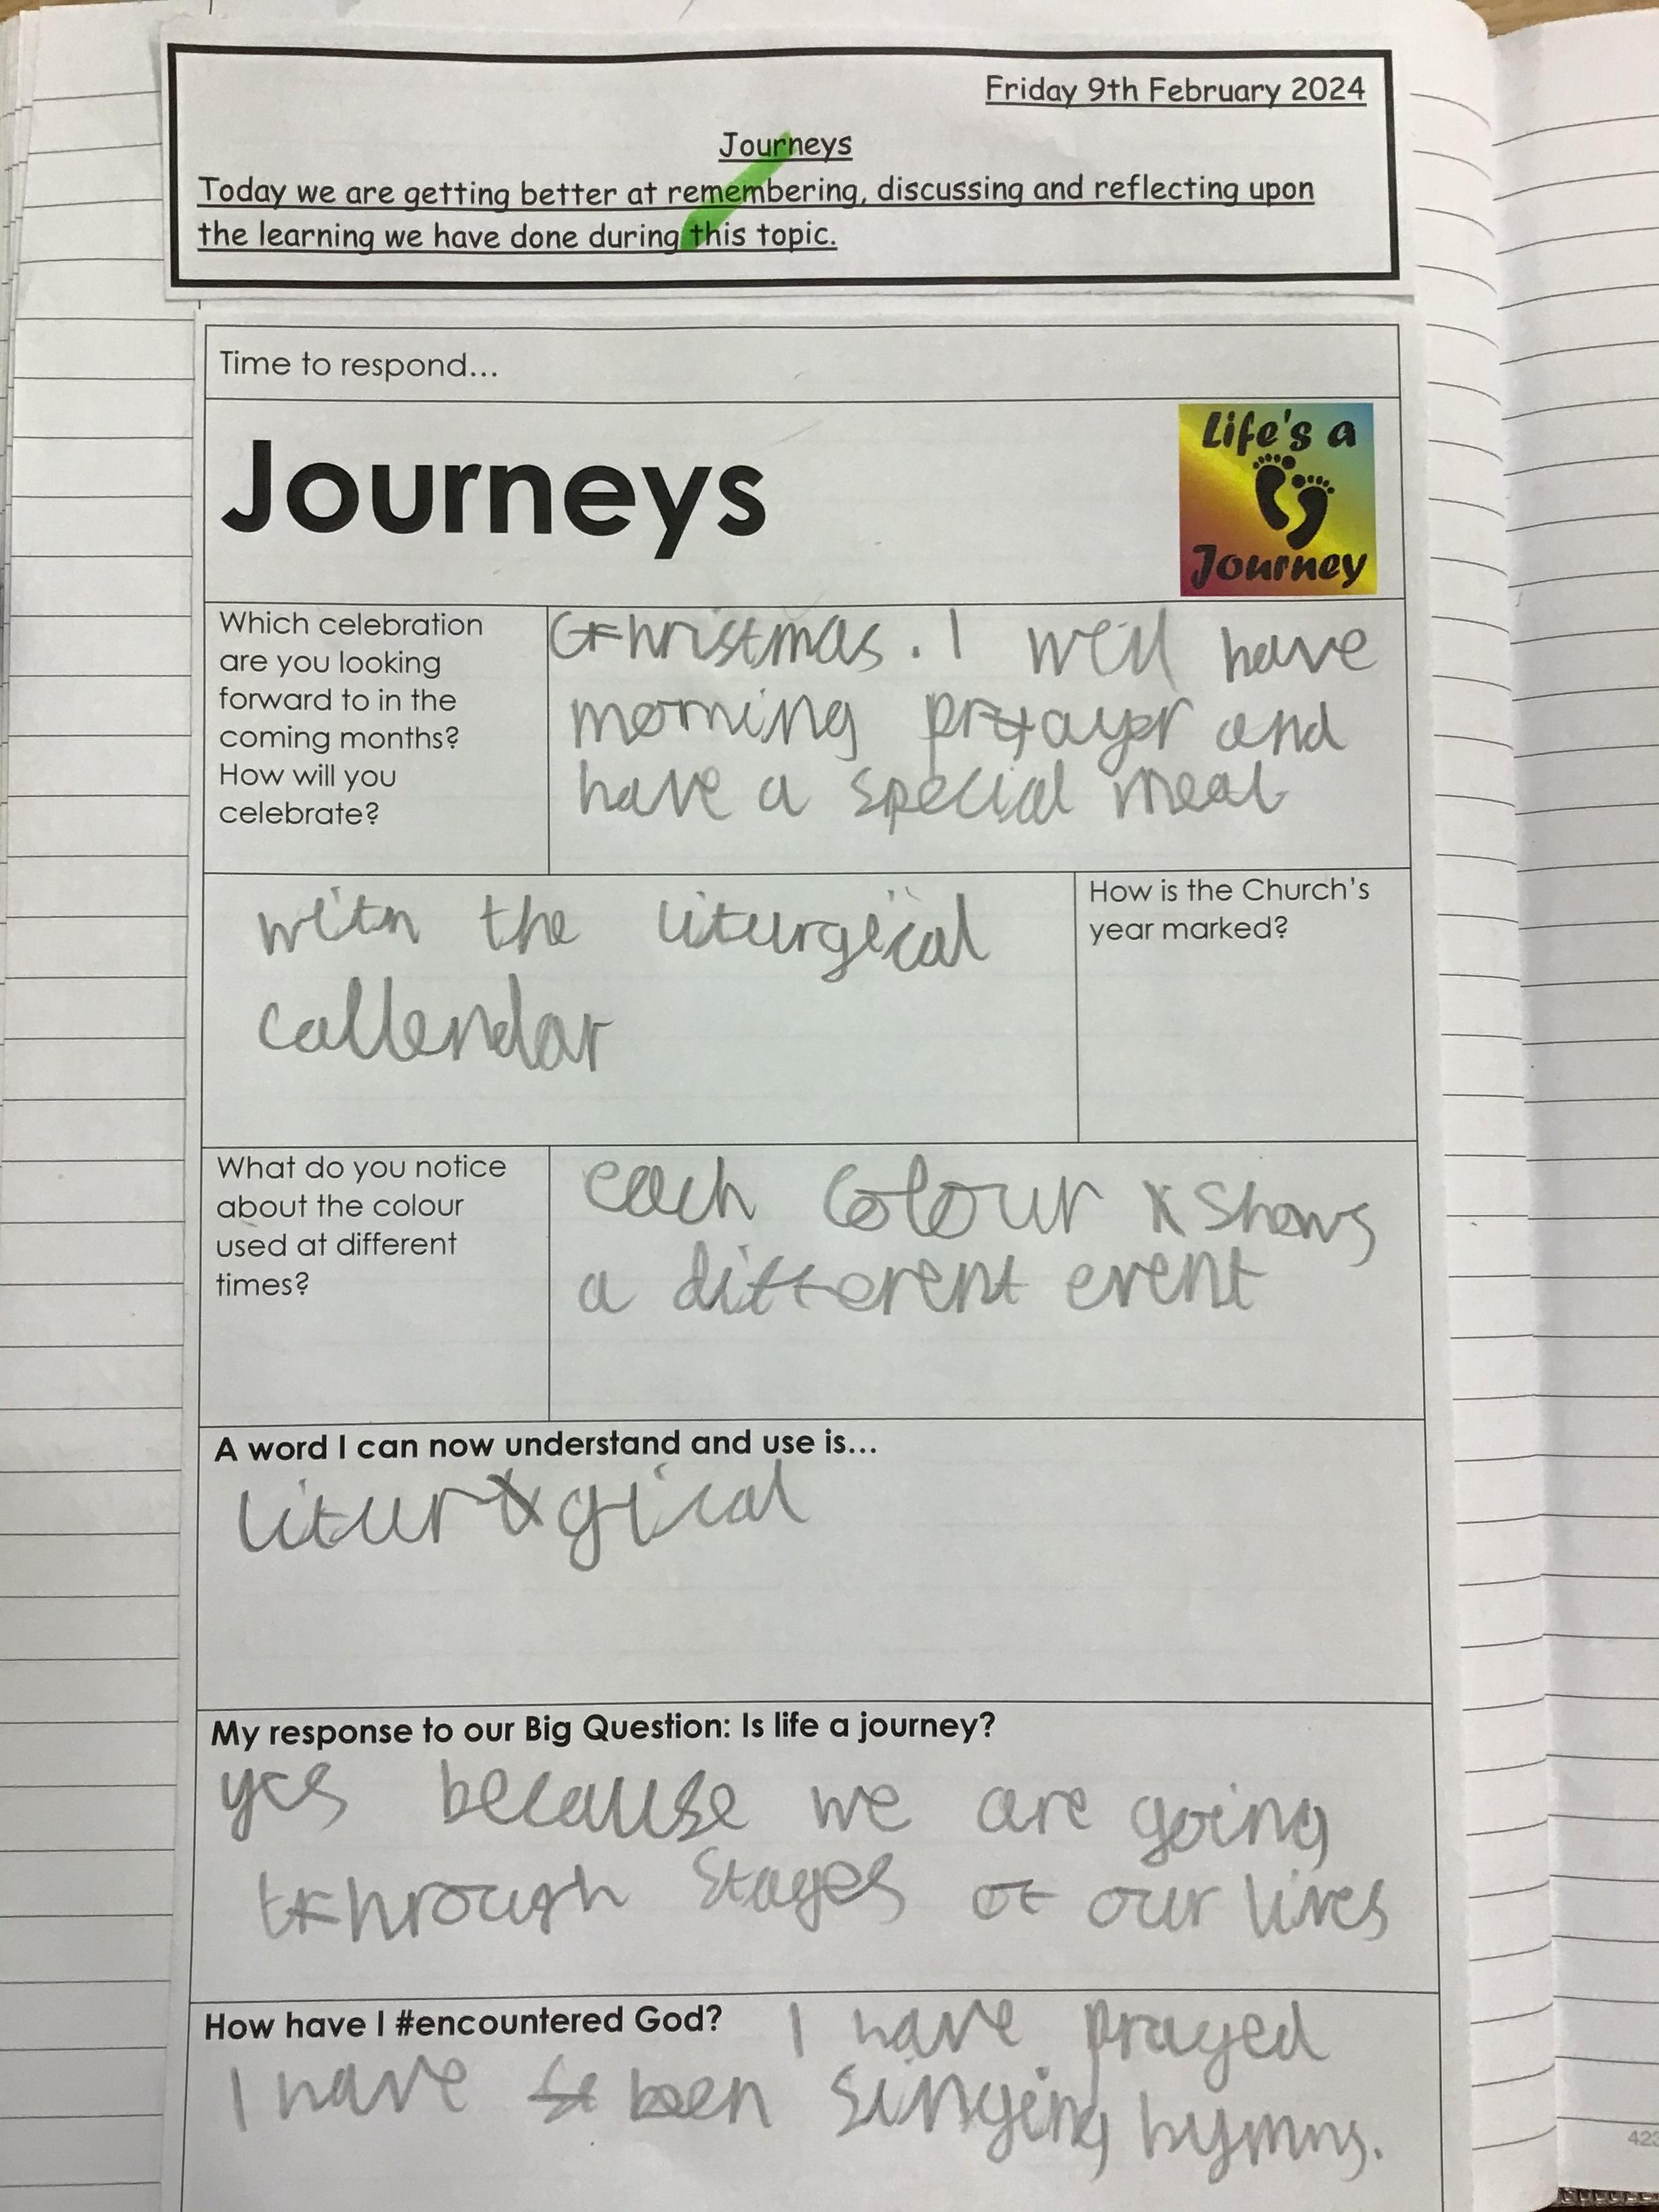 Friday 9th February 2024
Journeys
Today we are getting better at remembering, discussing and reflecting upon
the learning we have done during this topic.
Time to respond...
Journeys
Life's a
Journey
Which celebration
are you looking
forward to in the
coming months?
How will you
celebrate?
Christmas. I will have
morning prayer and
have a special meal
with the liturgical
callendar
How is the Church's
year marked?
What do you notice
about the colour
used at different
times?
each colour shows
a different event
A word I can now understand and use is...
liturgical
My response to our Big Question: Is life a journey?
yes because we are going
through stages of our lives
How have I #encountered God? I have prayed
I have been singing hymns.
423